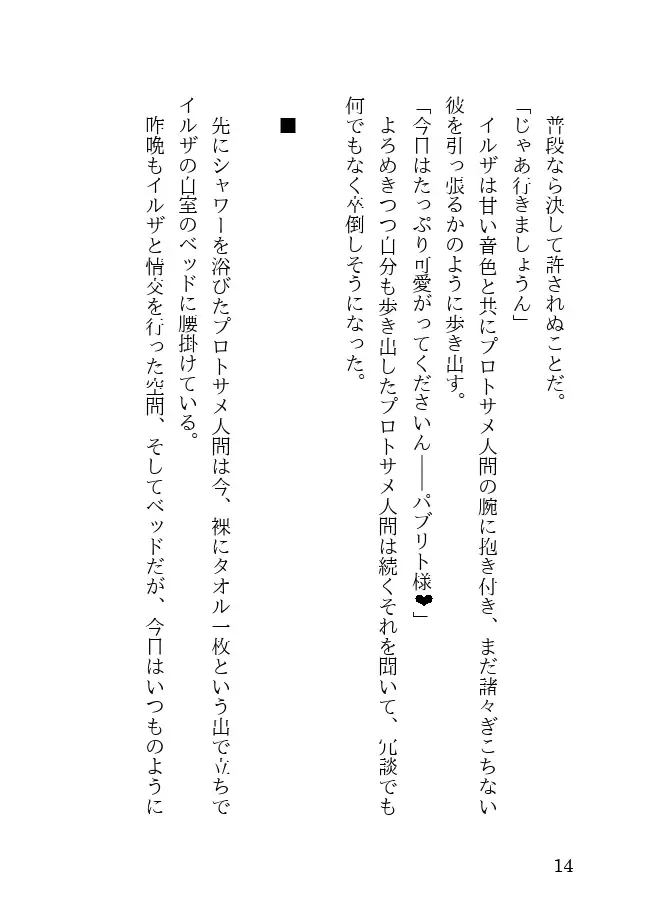 普段なら決して許されぬことだ。
「じゃあ行きましょうん」
イルザは甘い音色と共にプロトサメ人間の腕に抱き付き、まだ諸々ぎこちない
彼を引っ張るかのように歩き出す。
「今日はたっぷり可愛がってくださいん――パブリト様❤」
よろめきつつ自分も歩き出したプロトサメ人間は続くそれを聞いて、冗談でも
何でもなく卒倒しそうになった。
■
先にシャワーを浴びたプロトサメ人間は今、裸にタオル一枚という出で立ちで
イルザの自室のベッドに腰掛けている。
昨晩もイルザと情交を行った空間、そしてベッドだが、今日はいつものように
14